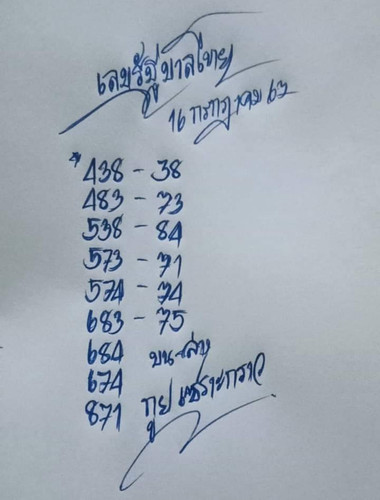 เลขรัฐบาลไทย
16 กรกฎาคม 63
* 438 - 38
483 - 73
538 - 84
573 - 71
574 - 74
683 - 75
684 บน-ล่าง
674
871 กูย เซราะกราว